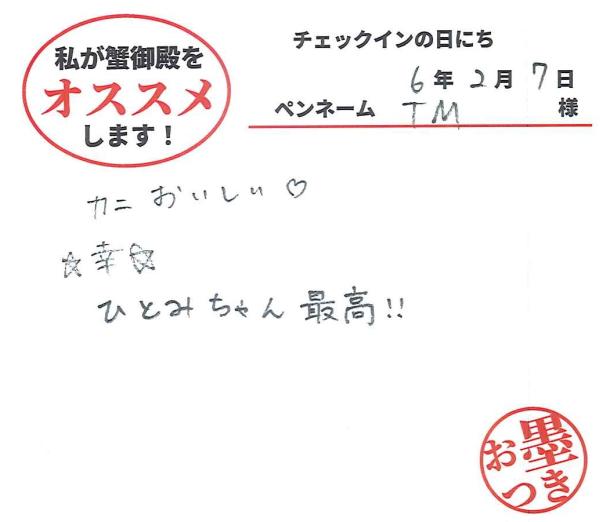 私が蟹御殿を
オススメ
します！
チェックインの日にち
6年2月7日
ペンネーム TM 様
カニ おいしい♡
☆幸☆
ひとみちゃん 最高!!
お墨つき